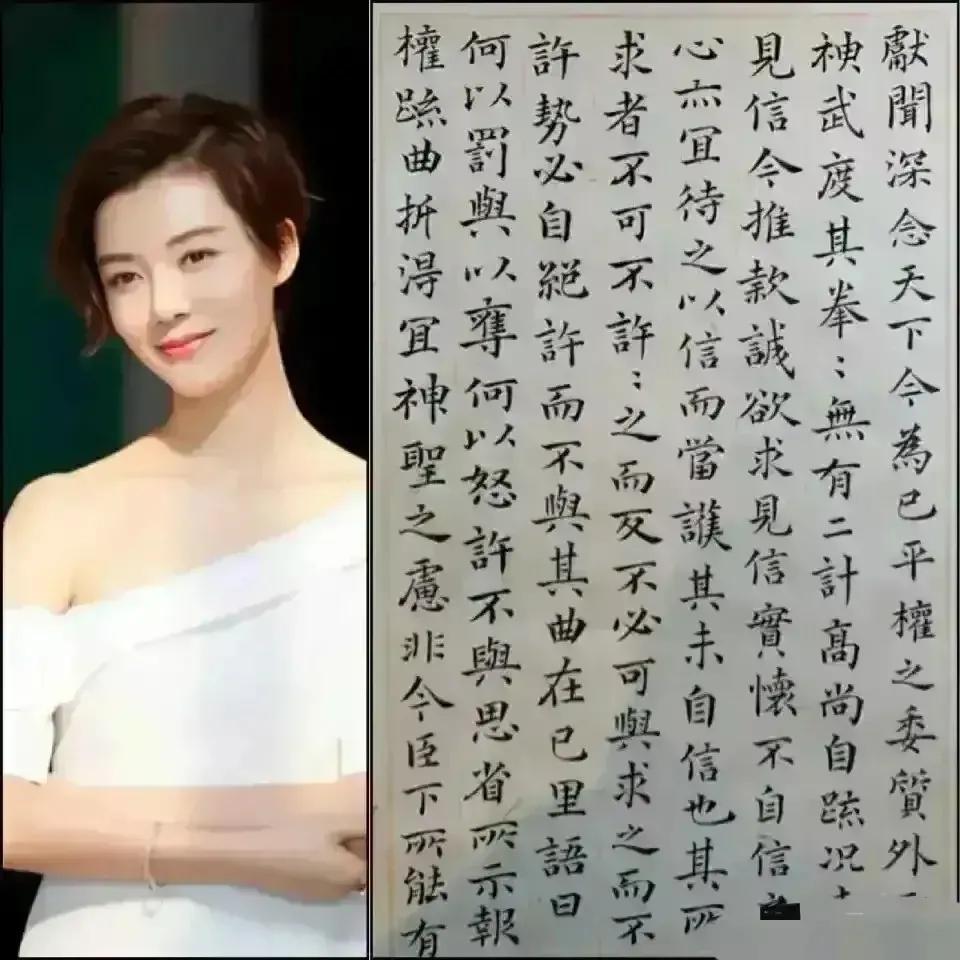 獻聞深念天下今為已平權之委質外
神武度其拳:無有二計高尚自踈况
見信今推款誠欲求見信實懷不自信
心亦冝待之以信而當護其未自信也其所
求者不可不許:之而反不必可與求之而不
許勢必自絕許而不與其曲在已里語曰
何以罰與以奪何以怒許不與思省所示報
權踈曲折得冝神聖之慮非今臣下所能有